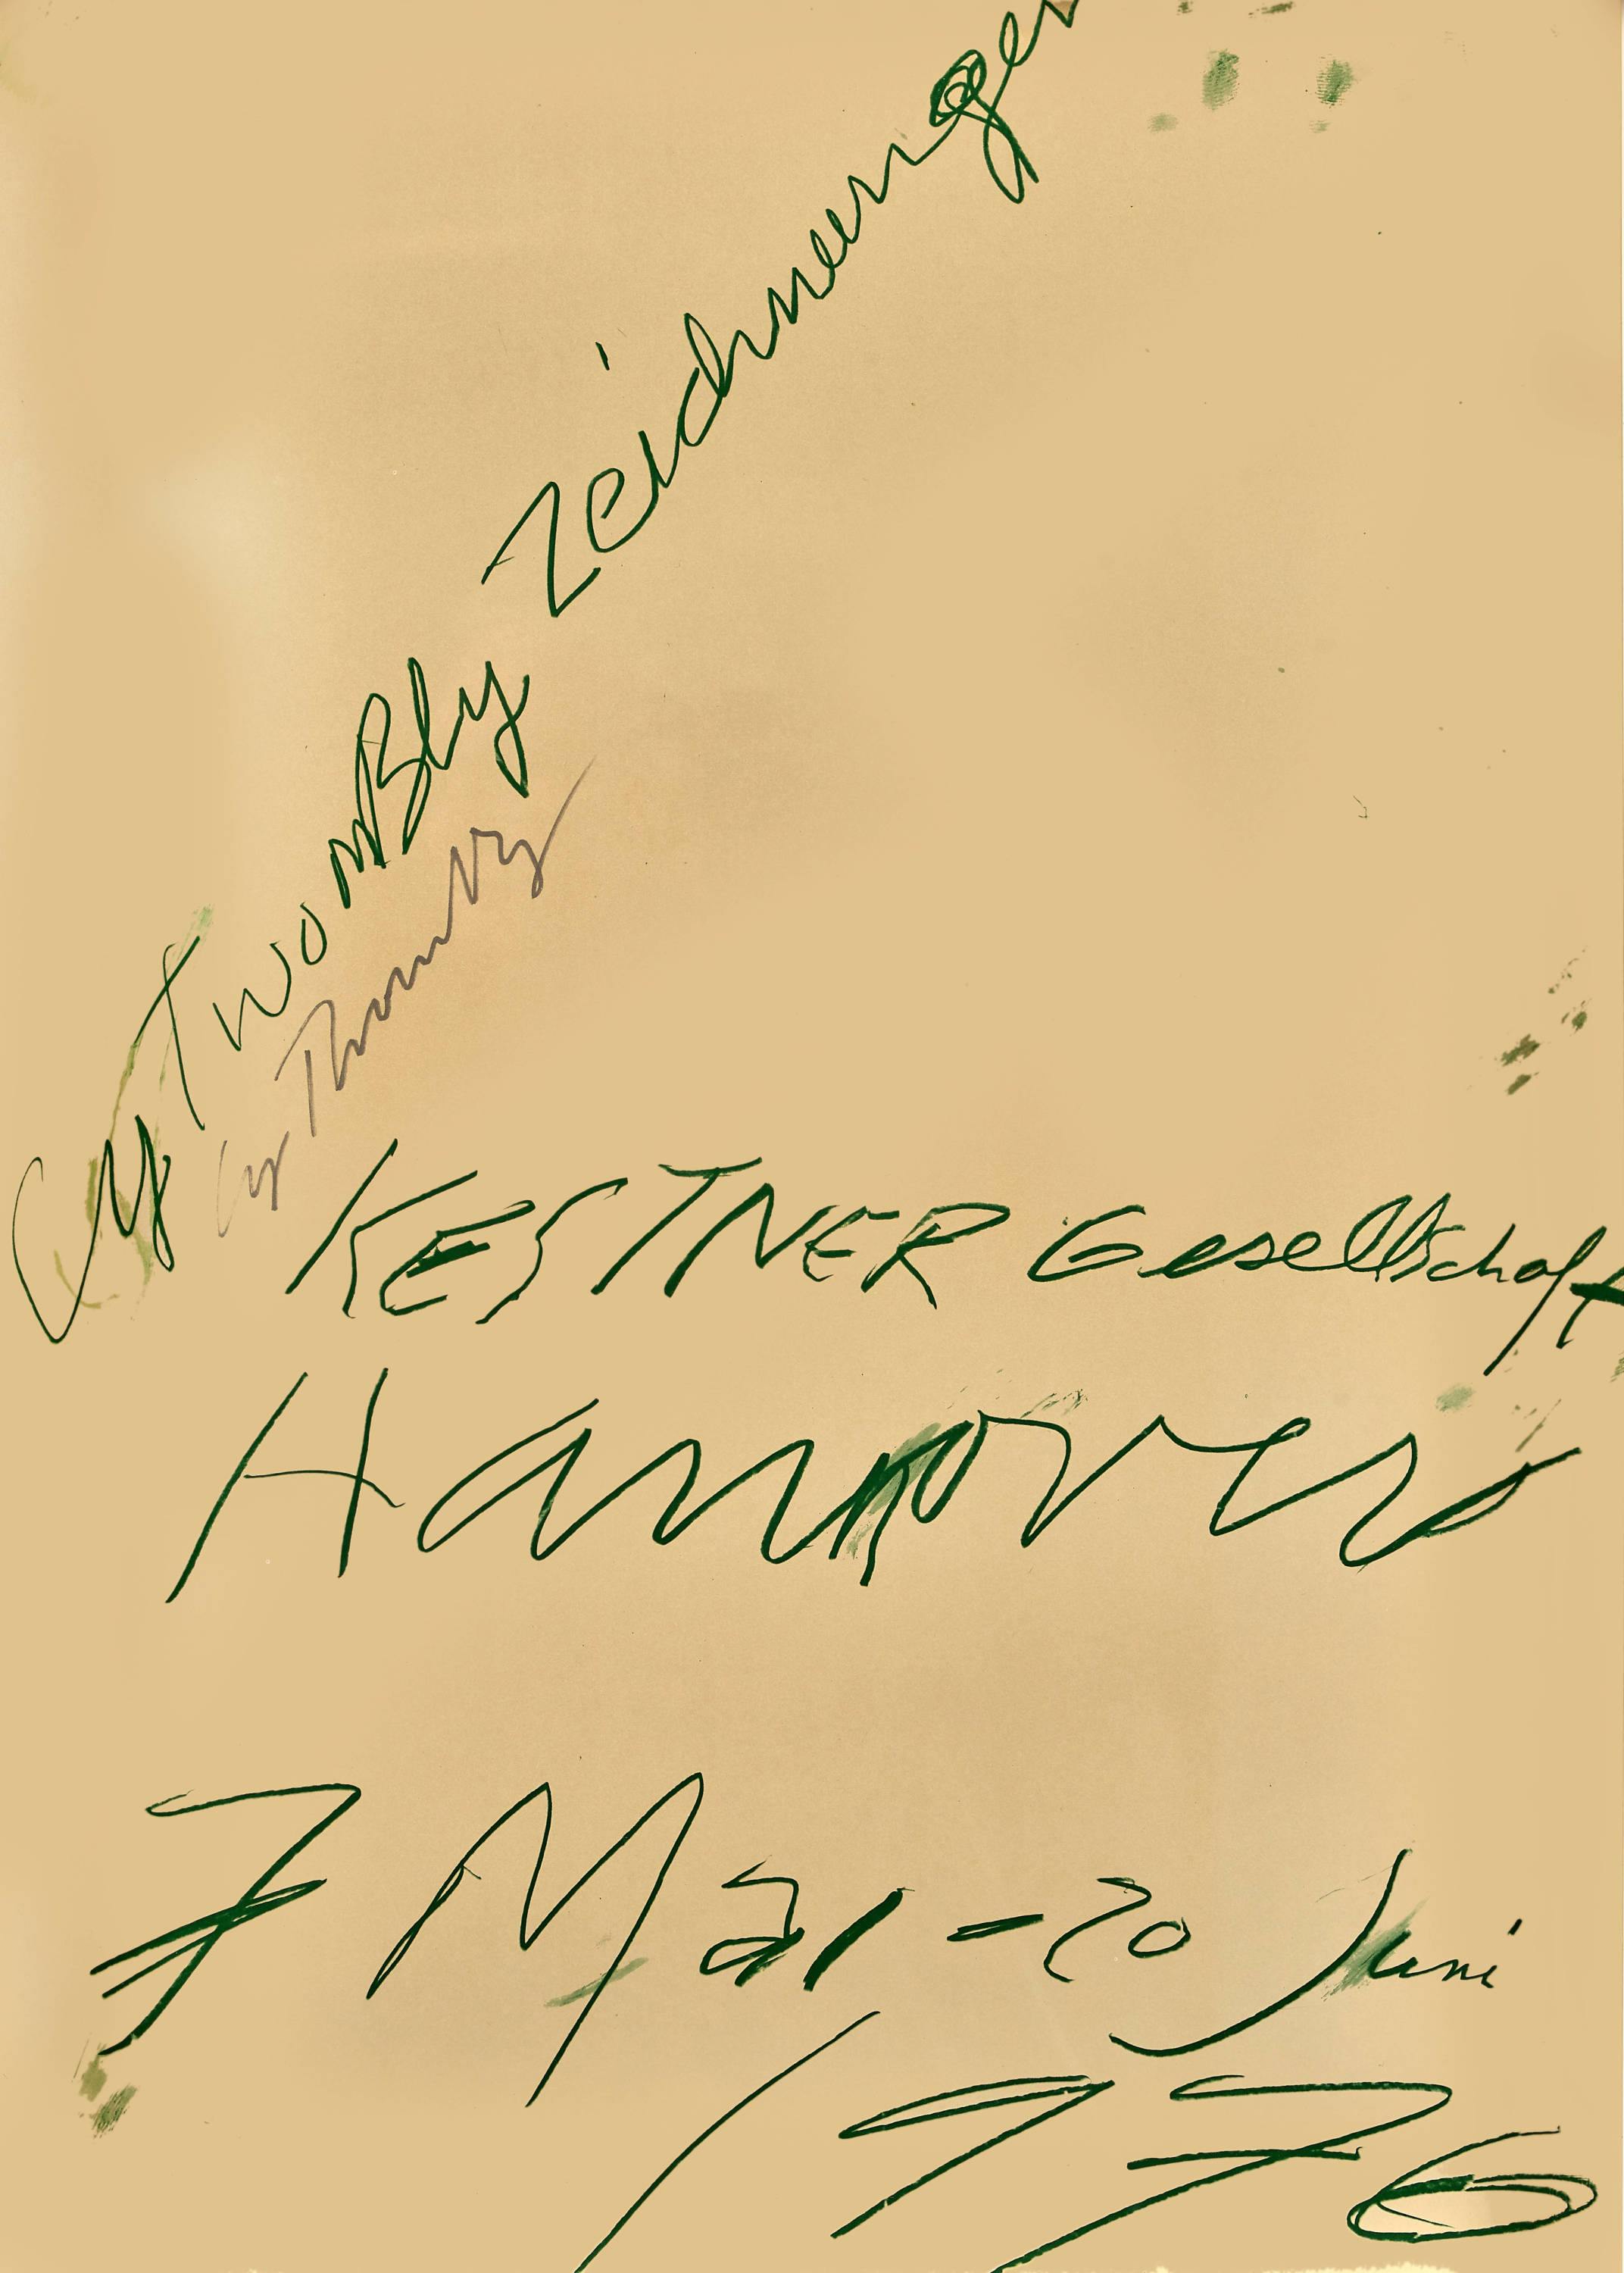 Cy TwomBly Zeichnungen
Cy Twombly
KESTNER Gesellschaft
Hannover
7 Mai - 20 Juni
1976